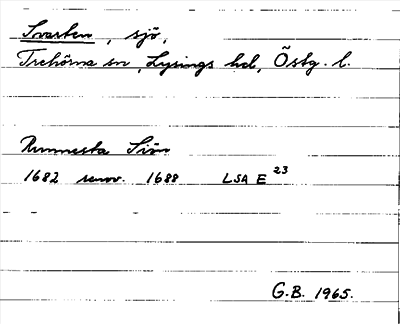 Svarten, sjö,
Trehörna sn, Lysings hd, Östg. l.
Rummesta Siön
1682 renov. 1688 LSA E 23
G.B. 1965.